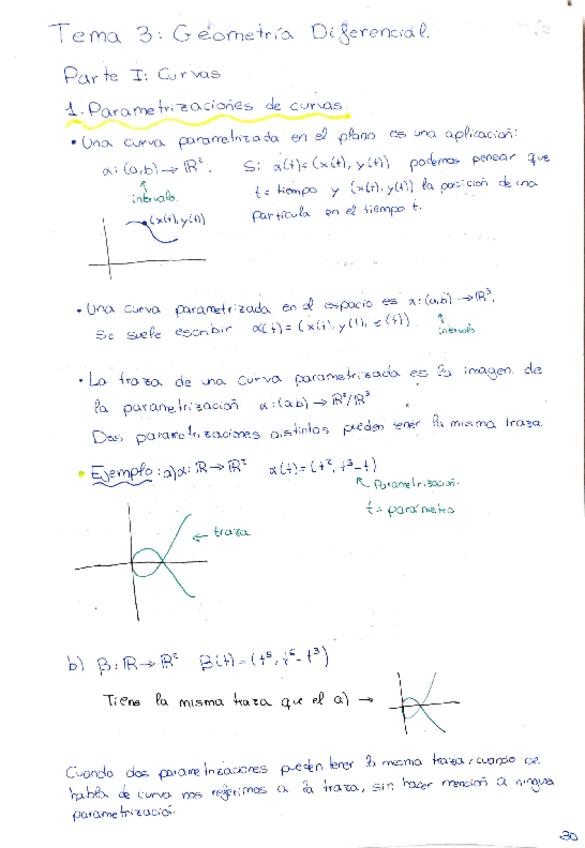 Tema 3: Geometría Diferencial.
Parte I: Curvas
1. Parametrizaciones de curvas.
• Una curva parametrizada en el plano es una aplicación:
α: (a,b) → ℝ². Si α(t) = (x(t), y(t)) podemos pensar que
↑
intervalo.
t = tiempo y (x(t), y(t)) la posición de una
partícula en el tiempo t.
(x(t), y(t))
• Una curva parametrizada en el espacio es α: (a,b) → ℝ³.
Se suele escribir α(t) = (x(t), y(t), z(t)).
↑
intervalo
• La traza de una curva parametrizada es la imagen de
la parametrización α: (a,b) → ℝ²/ℝ³
Dos parametrizaciones distintas pueden tener la misma traza.
• Ejemplo: a) α: ℝ → ℝ² α(t) = (t², t³-t)
↖ Parametrización.
t = parámetro
← traza
b) β: ℝ → ℝ² β(t) = (
Tiene la misma traza que el a) →
Cuando dos parametrizaciones pueden tener la misma traza, cuando se
habla de curva nos referimos a la traza, sin hacer mención a ninguna
parametrización.
30